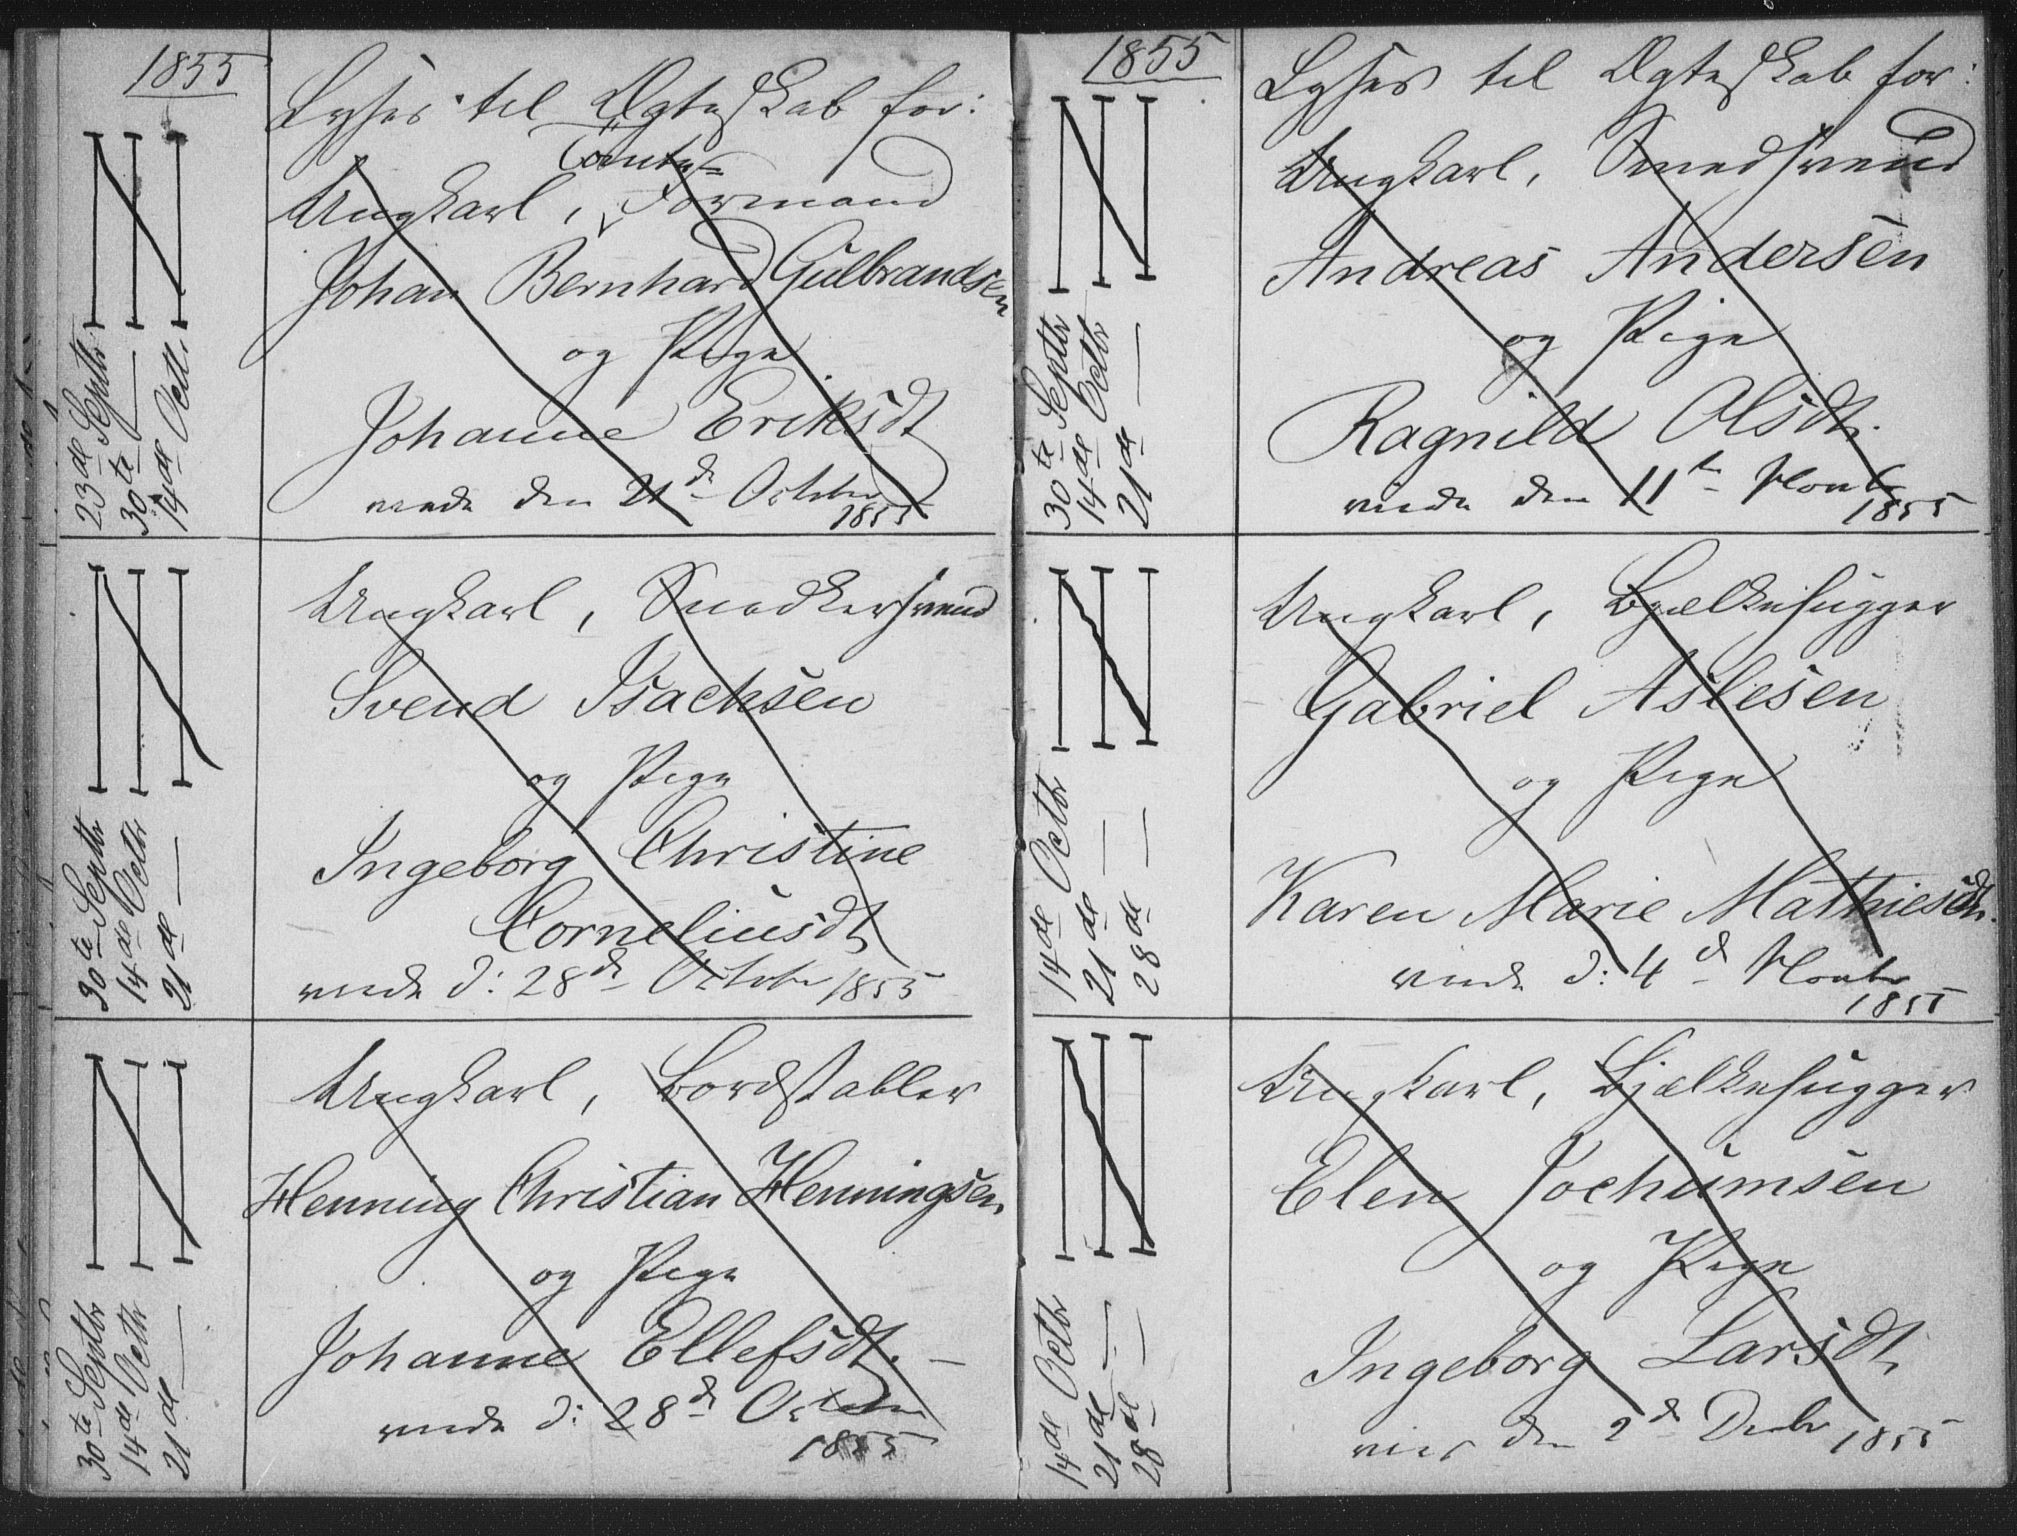 1855
Lyses til Ægteskab for:
Ungkarl, Formand
Johan Bernhard Gulbrandsen
og Pige
Johanne Eriksdt
viede den 21de October
1855
23de Septbr
30te —
14de Octbr
Ungkarl, Snedkersvend
Svend Isachsen
og Pige
Ingeborg Christine
Corneliusdt
viede d: 28de October 1855
30te Septbr
14de Octbr
21de —
Ungkarl, Bordstabler
Henning Christian Henningsen
og Pige
Johanne Ellefsdt. —
viede d: 28de October
1855
30te Septbr
14de Octbr
21de —
1855
Lyses til Ægteskab for:
Ungkarl, Smedsvend
Andreas Andersen
og Pige
Ragnild Olsdt.
viede den 11te Novbr
1855
30te Septbr
14de Octbr
21de —
Ungkarl, Bjælkehugger
Gabriel Aslesen
og Pige
Karen Marie Mathiesdt.
viede d: 4de Novbr
1855
14de Octbr
21de —
28de —
Ungkarl, Bjælkehugger
Elen Jochumsen
og Pige
Ingeborg Larsdt,
den 2de Decbr 1855
14de Octbr
21de —
28de —